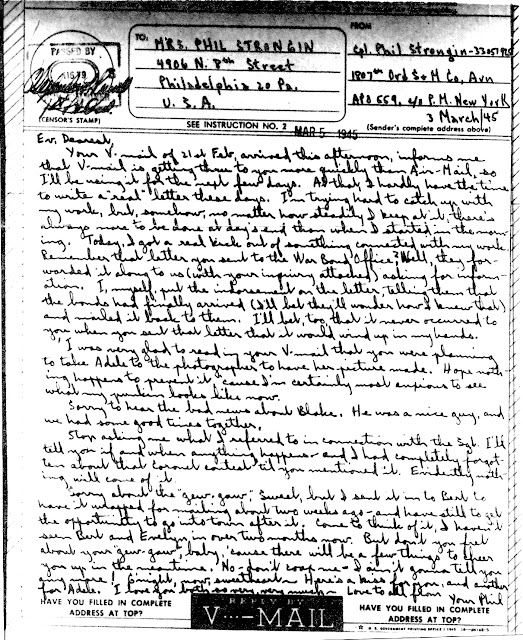 PASSED BY
(CENSOR'S STAMP)
TO:
MRS. PHIL STRONGIN
4906 N. 8th Street
Philadelphia 20 Pa.
U. S. A.
FROM
Cpl. Phil Strongin-33051925
1807th Ord S & M Co, Avn
APO 559, c/o P.M. New York
3 March 45
(Sender's complete address above)
SEE INSTRUCTION NO. 2
MAR 5 1945
Ev, Dearest,
Your V-mail of 21st Feb, arrived this afternoon, informs me
that V-mail is getting thru to you more quickly than Air-Mail, so
I'll be using it for the next few days. As that, I hardly have the time
to write a "real" letter these days. I'm trying hard to catch up with
my work, but, somehow, no matter how steadily I keep at it, there's
always more to be done at day's end than when I started in the morn-
ing. Today, I got a real kick out of something connected with my work.
Remember that letter you sent to the War Bond Office? Well, they for-
warded it along to us (with your inquiry attached) asking for inform-
ation. I, myself, put the indorsement on the letter, telling them that
the bonds had finally arrived (I'll bet they'll wonder how I knew that)
and mailed it back to them. I'll bet, too, that it never occurred to
you when you sent that letter that it would wind up in my hands.
I was very glad to read in your V-mail that you were planning
to take Adele to the photographer to have her picture made. Hope noth-
ing happens to prevent it, 'cause I'm certainly most anxious to see
what my punkin looks like now.
Sorry to hear the bad news about Blake. He was a nice guy, and
we had some good times together.
Stop asking me what I referred to in connection with the Sgt. I'll
tell you if and when anything happens - and I had completely forgot-
ten about that coronet contest 'til you mentioned it. Evidently noth-
ing will come of it.
Sorry about the "gew-gaw", Sweet, but I sent it in to Bert to
have it wrapped for mailing about two weeks ago - and have still to get
the opportunity to go into town after it. Come to think of it, I haven't
seen Bert and Evelyn in over two months now. But don't you feel
about your "gew-gaw", baby, 'cause there will be a few things to cheer
you up in the meantime. No - don't coax me - I ain't gonna tell you
any more! G'night, now, sweetheart - Here's a kiss for you, and another
for Adele. I love you both so very, very much - Love to all from
Your Phil
HAVE YOU FILLED IN COMPLETE
ADDRESS AT TOP?
REPLY BY
V···—MAIL
HAVE YOU FILLED IN COMPLETE
ADDRESS AT TOP?
U. S. GOVERNMENT PRINTING OFFICE